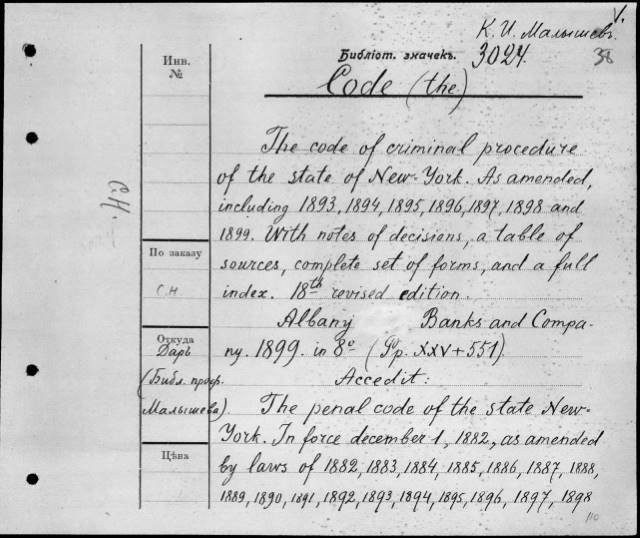 V.
К. И. Малышевъ
Библіот. значекъ.
3024.
38
Code (the)
Инв.
№
The code of criminal procedure
of the state of New-York. As amended,
including 1893, 1894, 1895, 1896, 1897, 1898 and
1899. With notes of decisions, a table of
sources, complete set of forms, and a full
index. 18th revised edition.
Albany Banks and Compa-
ny. 1899. in 8º (Pp. XXV+551).
Accedit:
The penal code of the state New-
York. In force december 1, 1882, as amended
by laws of 1882, 1883, 1884, 1885, 1886, 1887, 1888,
1889, 1890, 1891, 1892, 1893, 1894, 1895, 1896, 1897, 1898
С.Н.
По заказу
С.Н.
Откуда
Даръ
(Библ. проф.
Малышева).
Цѣна
110